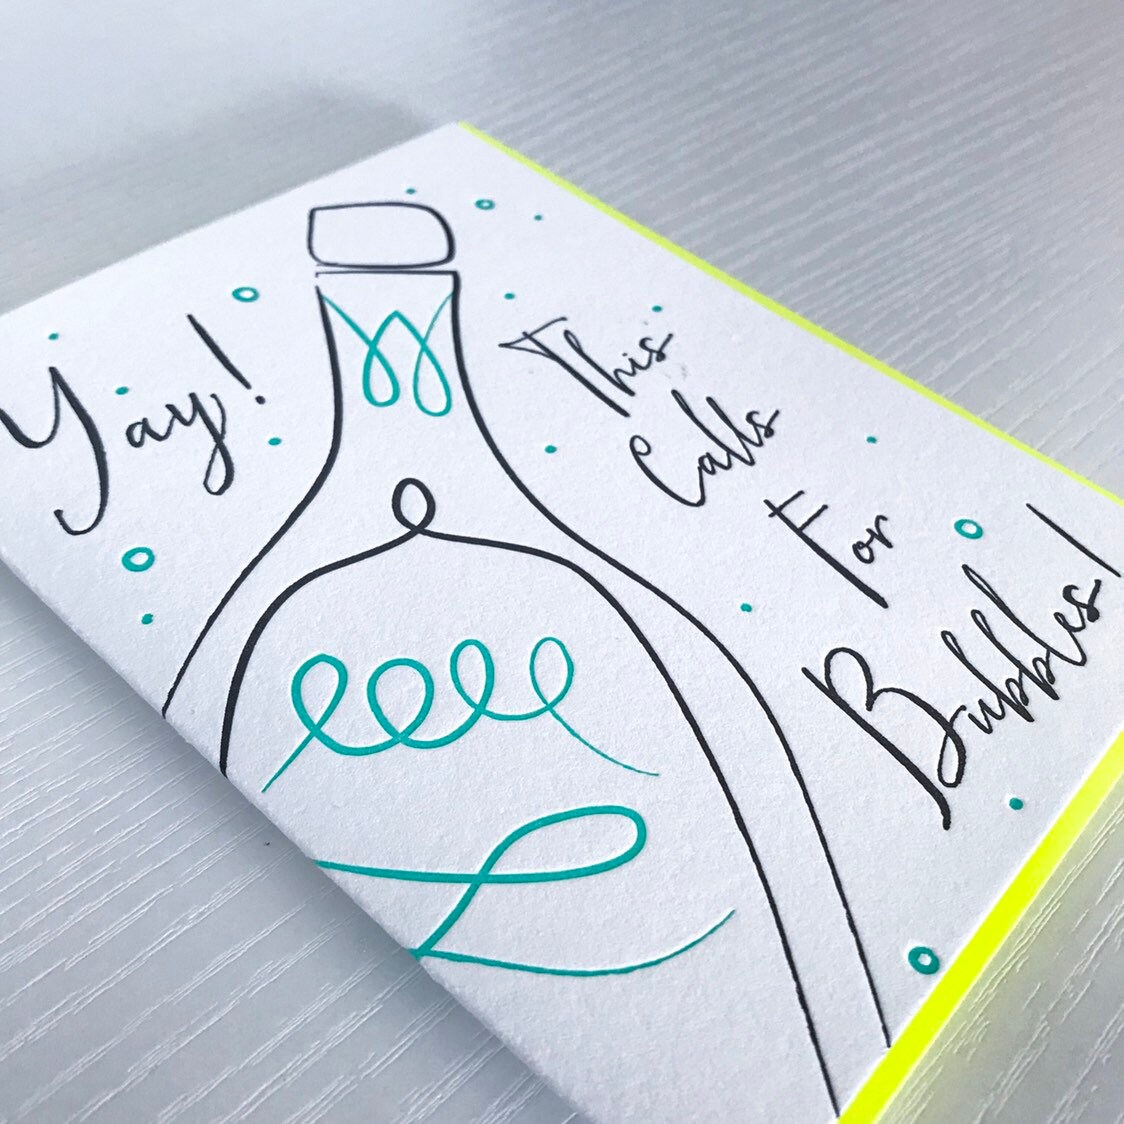 Yay!
This
Calls
For
Bubbles!